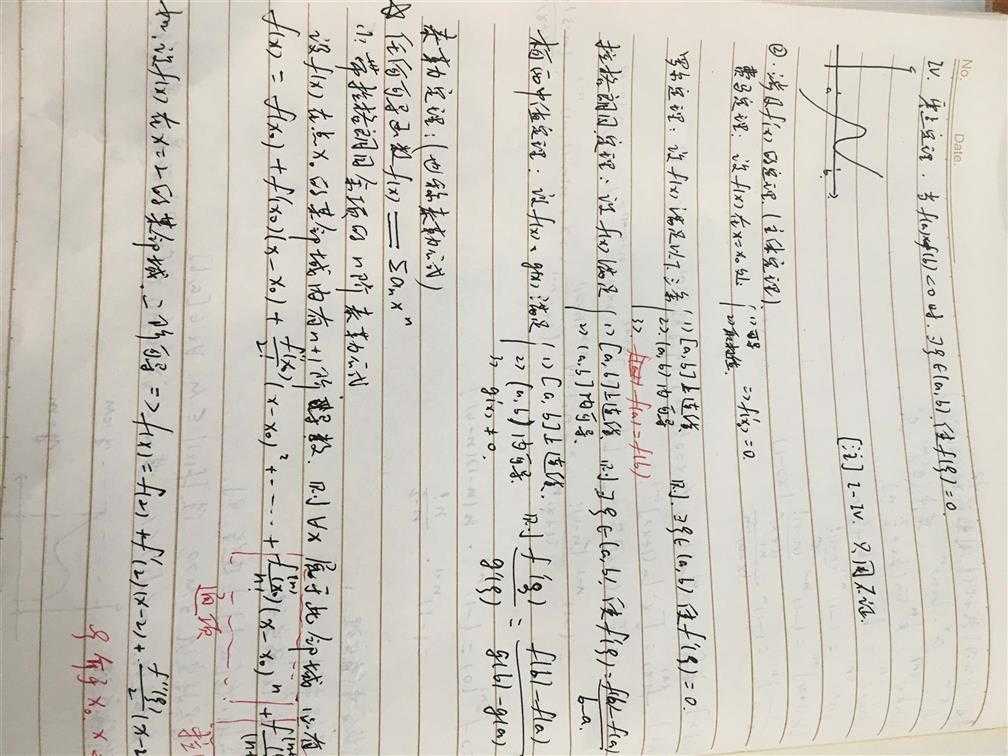 No.
Date.
IV. 零点定理：当f(a)f(b)<0时，∃ξ∈(a,b)，使f(ξ)=0
a b
[注] I-IV 只用不证
②. 涉及f'(x)的定理 (主体定理)
费马定理：设f(x)在x=x₀处 (1) 可导 (2) 取极值 => f'(x₀)=0.
罗尔定理：设f(x)满足以下三条 (1) [a,b]上连续 (2) (a,b)内可导 (3) f(a)=f(b) 则∃ξ∈(a,b) 使f'(ξ)=0.
拉格朗日定理：设f(x)满足 (1) [a,b]上连续 (2) (a,b)内可导. 则∃ξ∈(a,b), 使f'(ξ)=f(b)-f(a)/b-a.
柏西中值定理：设f(x), g(x)满足 (1) [a,b]上连续. (2) (a,b)内可导 (3) g'(x)≠0. 则 f'(ξ)/g'(ξ) = f(b)-f(a)/g(b)-g(a)
泰勒定理：(也称泰勒公式)
☆ 任何可导函数f(x) = Σaₙxⁿ
(1) 带拉格朗日余项的n阶泰勒公式
设f(x)在点x₀的某邻域内有n+1阶导数. 则∀x属于此邻域 公有
f(x) = f(x₀) + f'(x₀)(x-x₀) + f''(x₀)/2!(x-x₀)² + ···· + f⁽ⁿ⁾(x₀)/n!(x-x₀)ⁿ +
设f(x)在x=2的某邻域二阶可导 => f(x)=f(2)+f'(2)(x-2)+f''(ξ)/2(x-2
ξ介于x₀, x